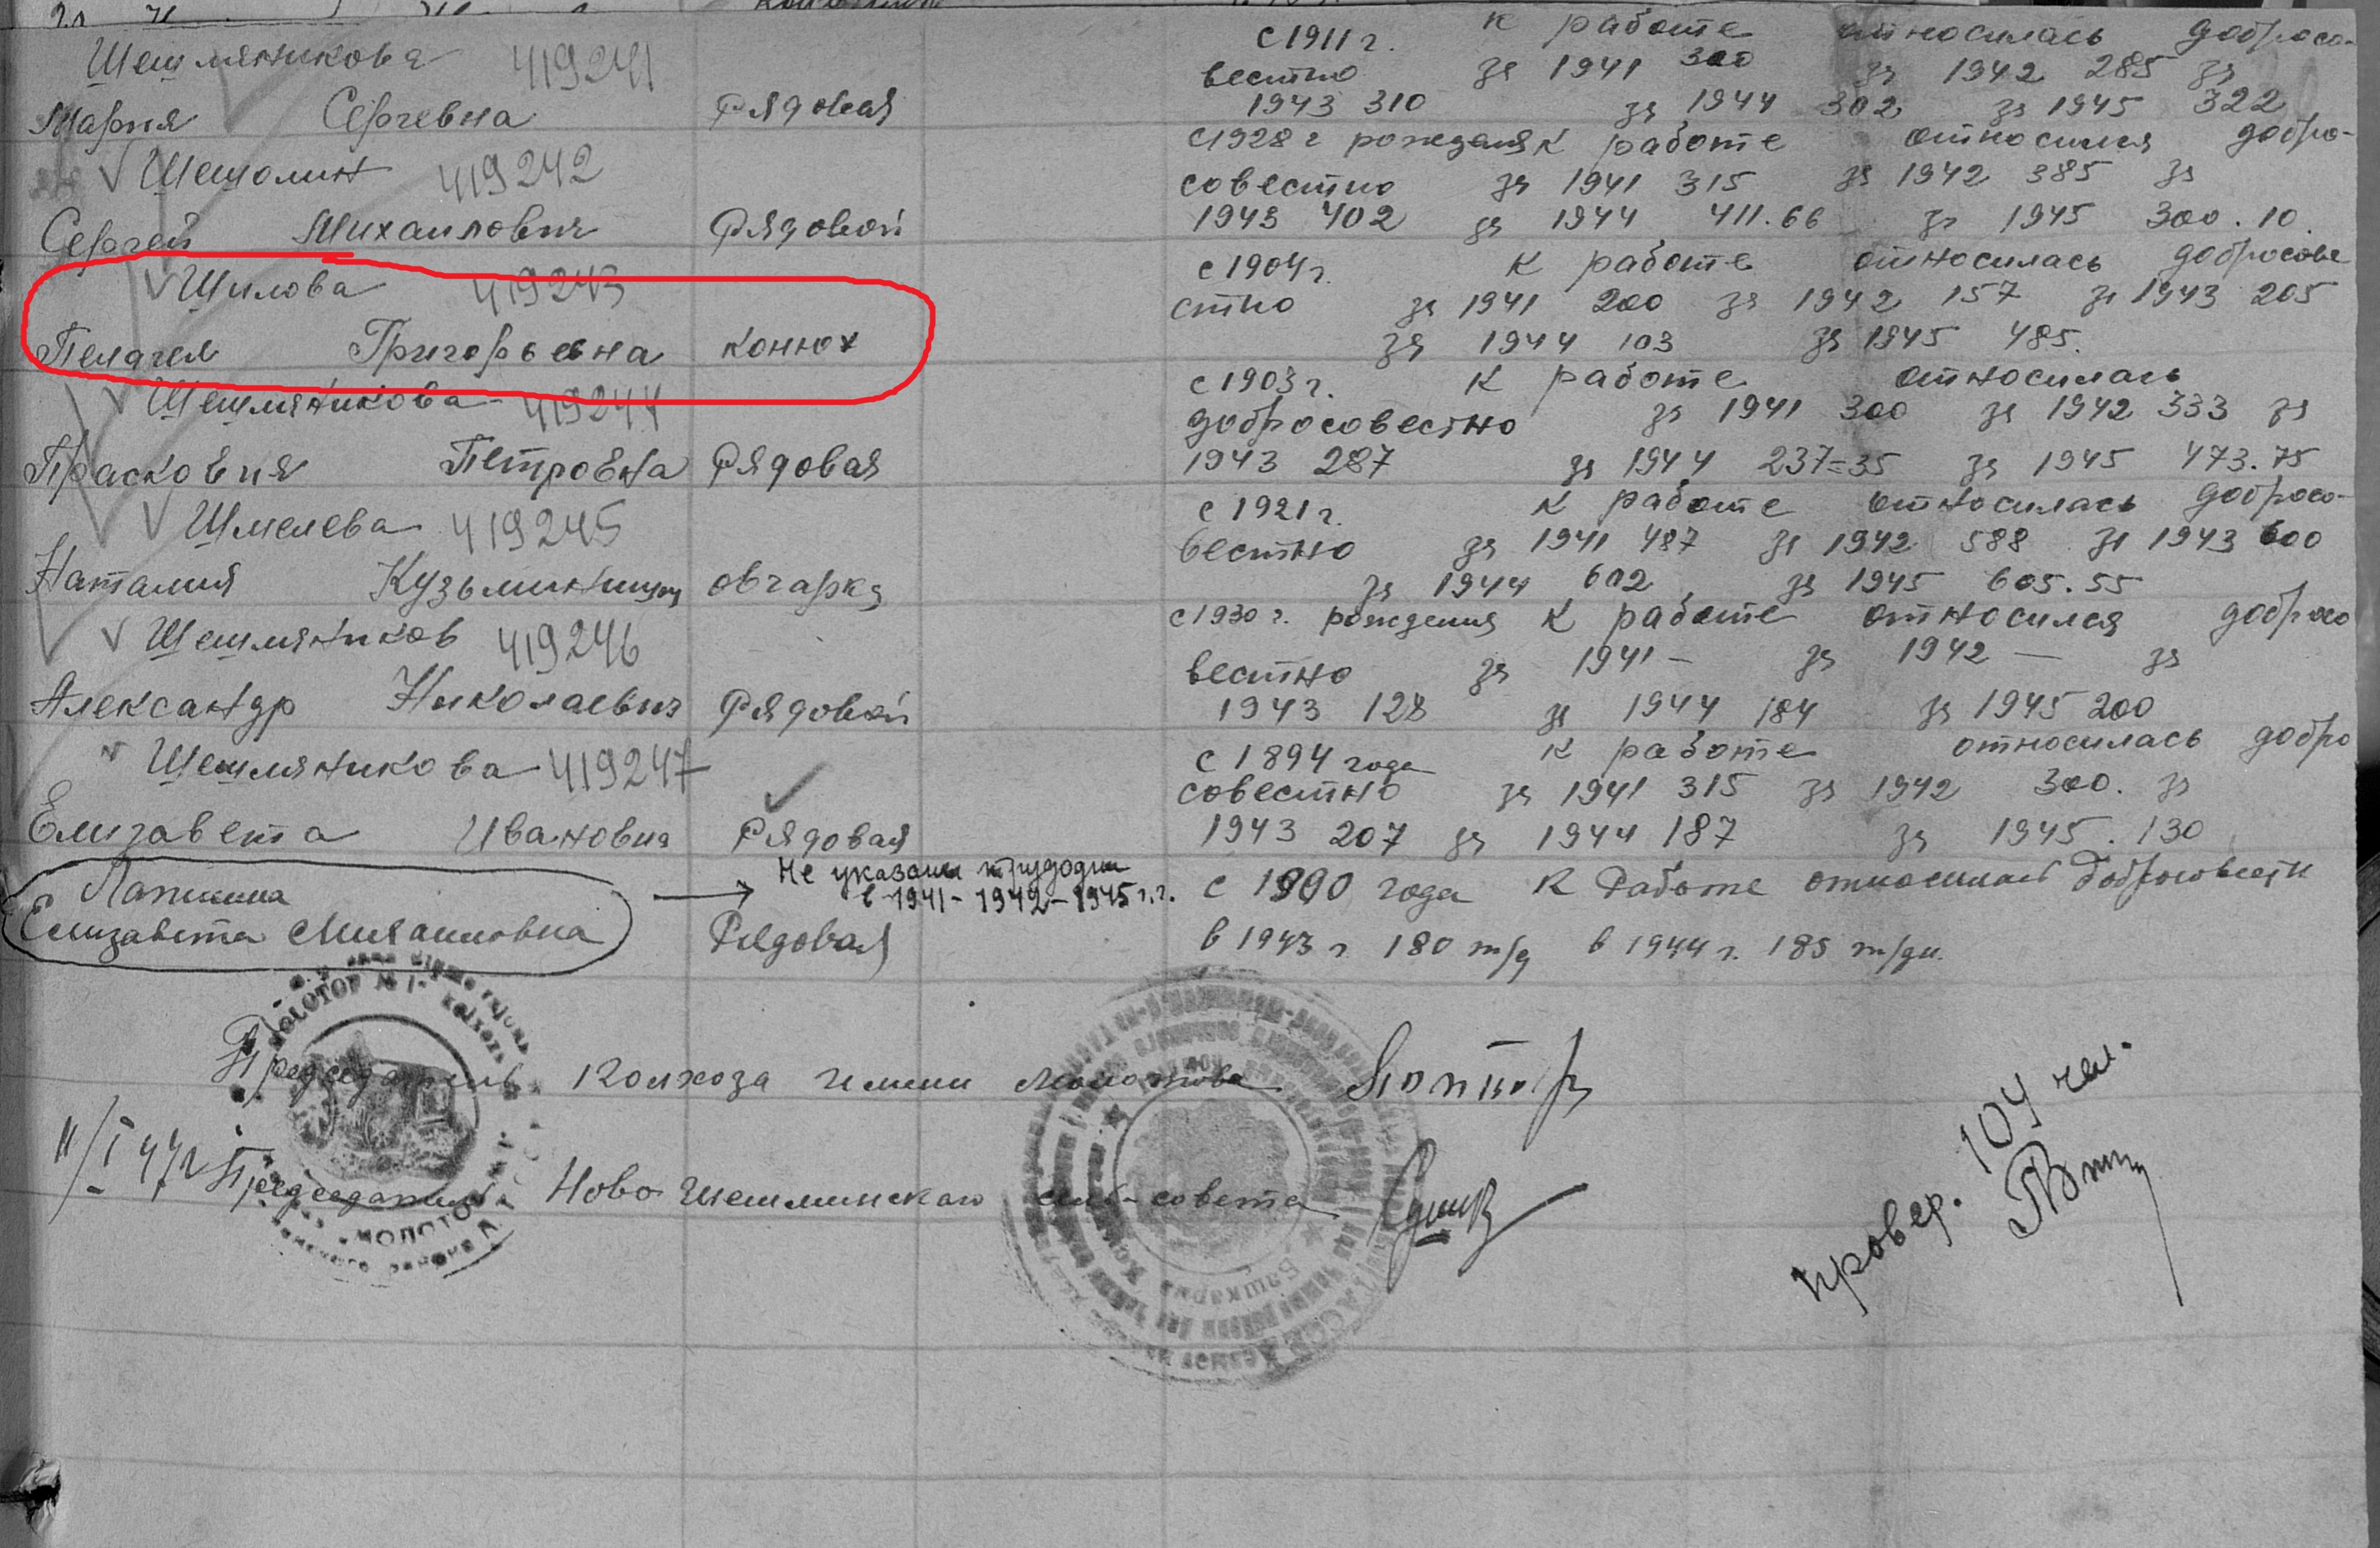 Шешмяникова 419241 с 1911 г. к работе относилась добросо-
вестно за 1941 300 за 1942 285 за
Мария Сергевна Рядовая 1943 310 за 1944 302 за 1945 322
Шешолин 419242 с 1928 г рождения к работе относился добро-
совестно за 1941 315 за 1942 385 за
Сергей Михаилович Рядовой 1943 402 за 1944 411.66 за 1945 300.10.
Шилова 419243 с 1904 г. к работе относилась добросове
стно за 1941 200 за 1942 157 за 1943 205
Пелагея Григорьевна конюх за 1944 103 за 1945 485.
Шешмяникова 419244 с 1903 г. к работе относилась
добросовестно за 1941 300 за 1942 333 за
Прасковия Петровна Рядовая 1943 287 за 1944 237=35 за 1945 473.75
Шмелева 419245 с 1921 г. к работе относилась добросо-
вестно за 1941 487 за 1942 588 за 1943 600
Наталия овчарка за 1944 602 за 1945 605.55
Шешмяников 419246 с 1930 г. рождения к работе относился добросо
вестно за 1941 – за 1942 – за
Александр Николаевич Рядовой 1943 128 за 1944 184 за 1945 200
Шешмяникова 419247 с 1894 года к работе относилась добро
совестно за 1941 315 за 1942 300. за
Елизавета Ивановна Рядовая 1943 207 за 1944 187 за 1945. 130
Не указаны трудодни
в 1941 – 1942 – 1945 г.г.
Лапшина с 1900 года к работе относилась
Елизавета Михаиловна Рядовая в 1943 г. 180 т/д в 1944 г. 185 т/дн.
MOLOTOV № 1
Председатель колхоза имени Молотова
11/I 47 г Председатель Ново Шешминского сель-совета
МОЛОТОВ
провер. 104 чел.